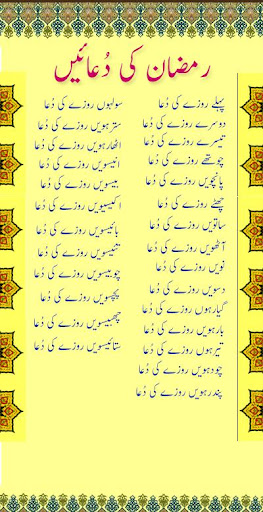 رمضان کی دُعائیں
پہلے روزے کی دُعا
دوسرے روزے کی دُعا
تیسرے روزے کی دُعا
چوتھے روزے کی دُعا
پانچویں روزے کی دُعا
چھٹے روزے کی دُعا
ساتویں روزے کی دُعا
آٹھویں روزے کی دُعا
نویں روزے کی دُعا
دسویں روزے کی دُعا
گیارہوں روزے کی دُعا
بارہویں روزے کی دُعا
تیرہوں روزے کی دُعا
چودہویں روزے کی دُعا
پندرہویں روزے کی دُعا
سولہوں روزے کی دُعا
سترہویں روزے کی دُعا
اٹھارہویں روزے کی دُعا
انیسویں روزے کی دُعا
بیسویں روزے کی دُعا
اکیسیویں روزے کی دُعا
بائیسویں روزے کی دُعا
تئیسویں روزے کی دُعا
چوبیسویں روزے کی دُعا
پچیسویں روزے کی دُعا
چھبیسویں روزے کی دُعا
ستائیسویں روزے کی دُعا